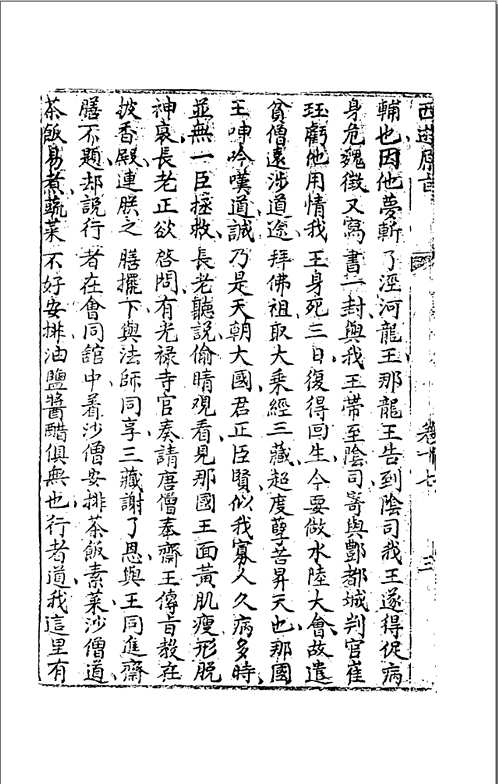 西遊原旨 卷十七 三
輔也因他夢斬了涇河龍王那龍王告到陰司我王遂得促病
身危魏徵又寫書一封與我王帶至陰司寄與酆都城判官崔
珏虧他用情我王身死三日復得回生今要做水陸大會故遣
貧僧遠涉道途拜佛祖取大乘經三藏超度孽苦昇天也那國
王呻吟嘆道誠乃是天朝大國君正臣賢似我寡人久病多時
並無一臣拯救長老聽說偷睛觀看見那國王面黃肌瘦形脫
神衰長老正欲啓問有光祿寺官奏請唐僧奉齋王傳旨教在
披香殿連朕之膳擺下與法師同享三藏謝了恩與王同進齋
膳不題却說行者在會同館中着沙僧安排茶飯素菜沙僧道
茶飯易煮蔬菜不好安排油鹽醬醋俱無也行者道我這里有